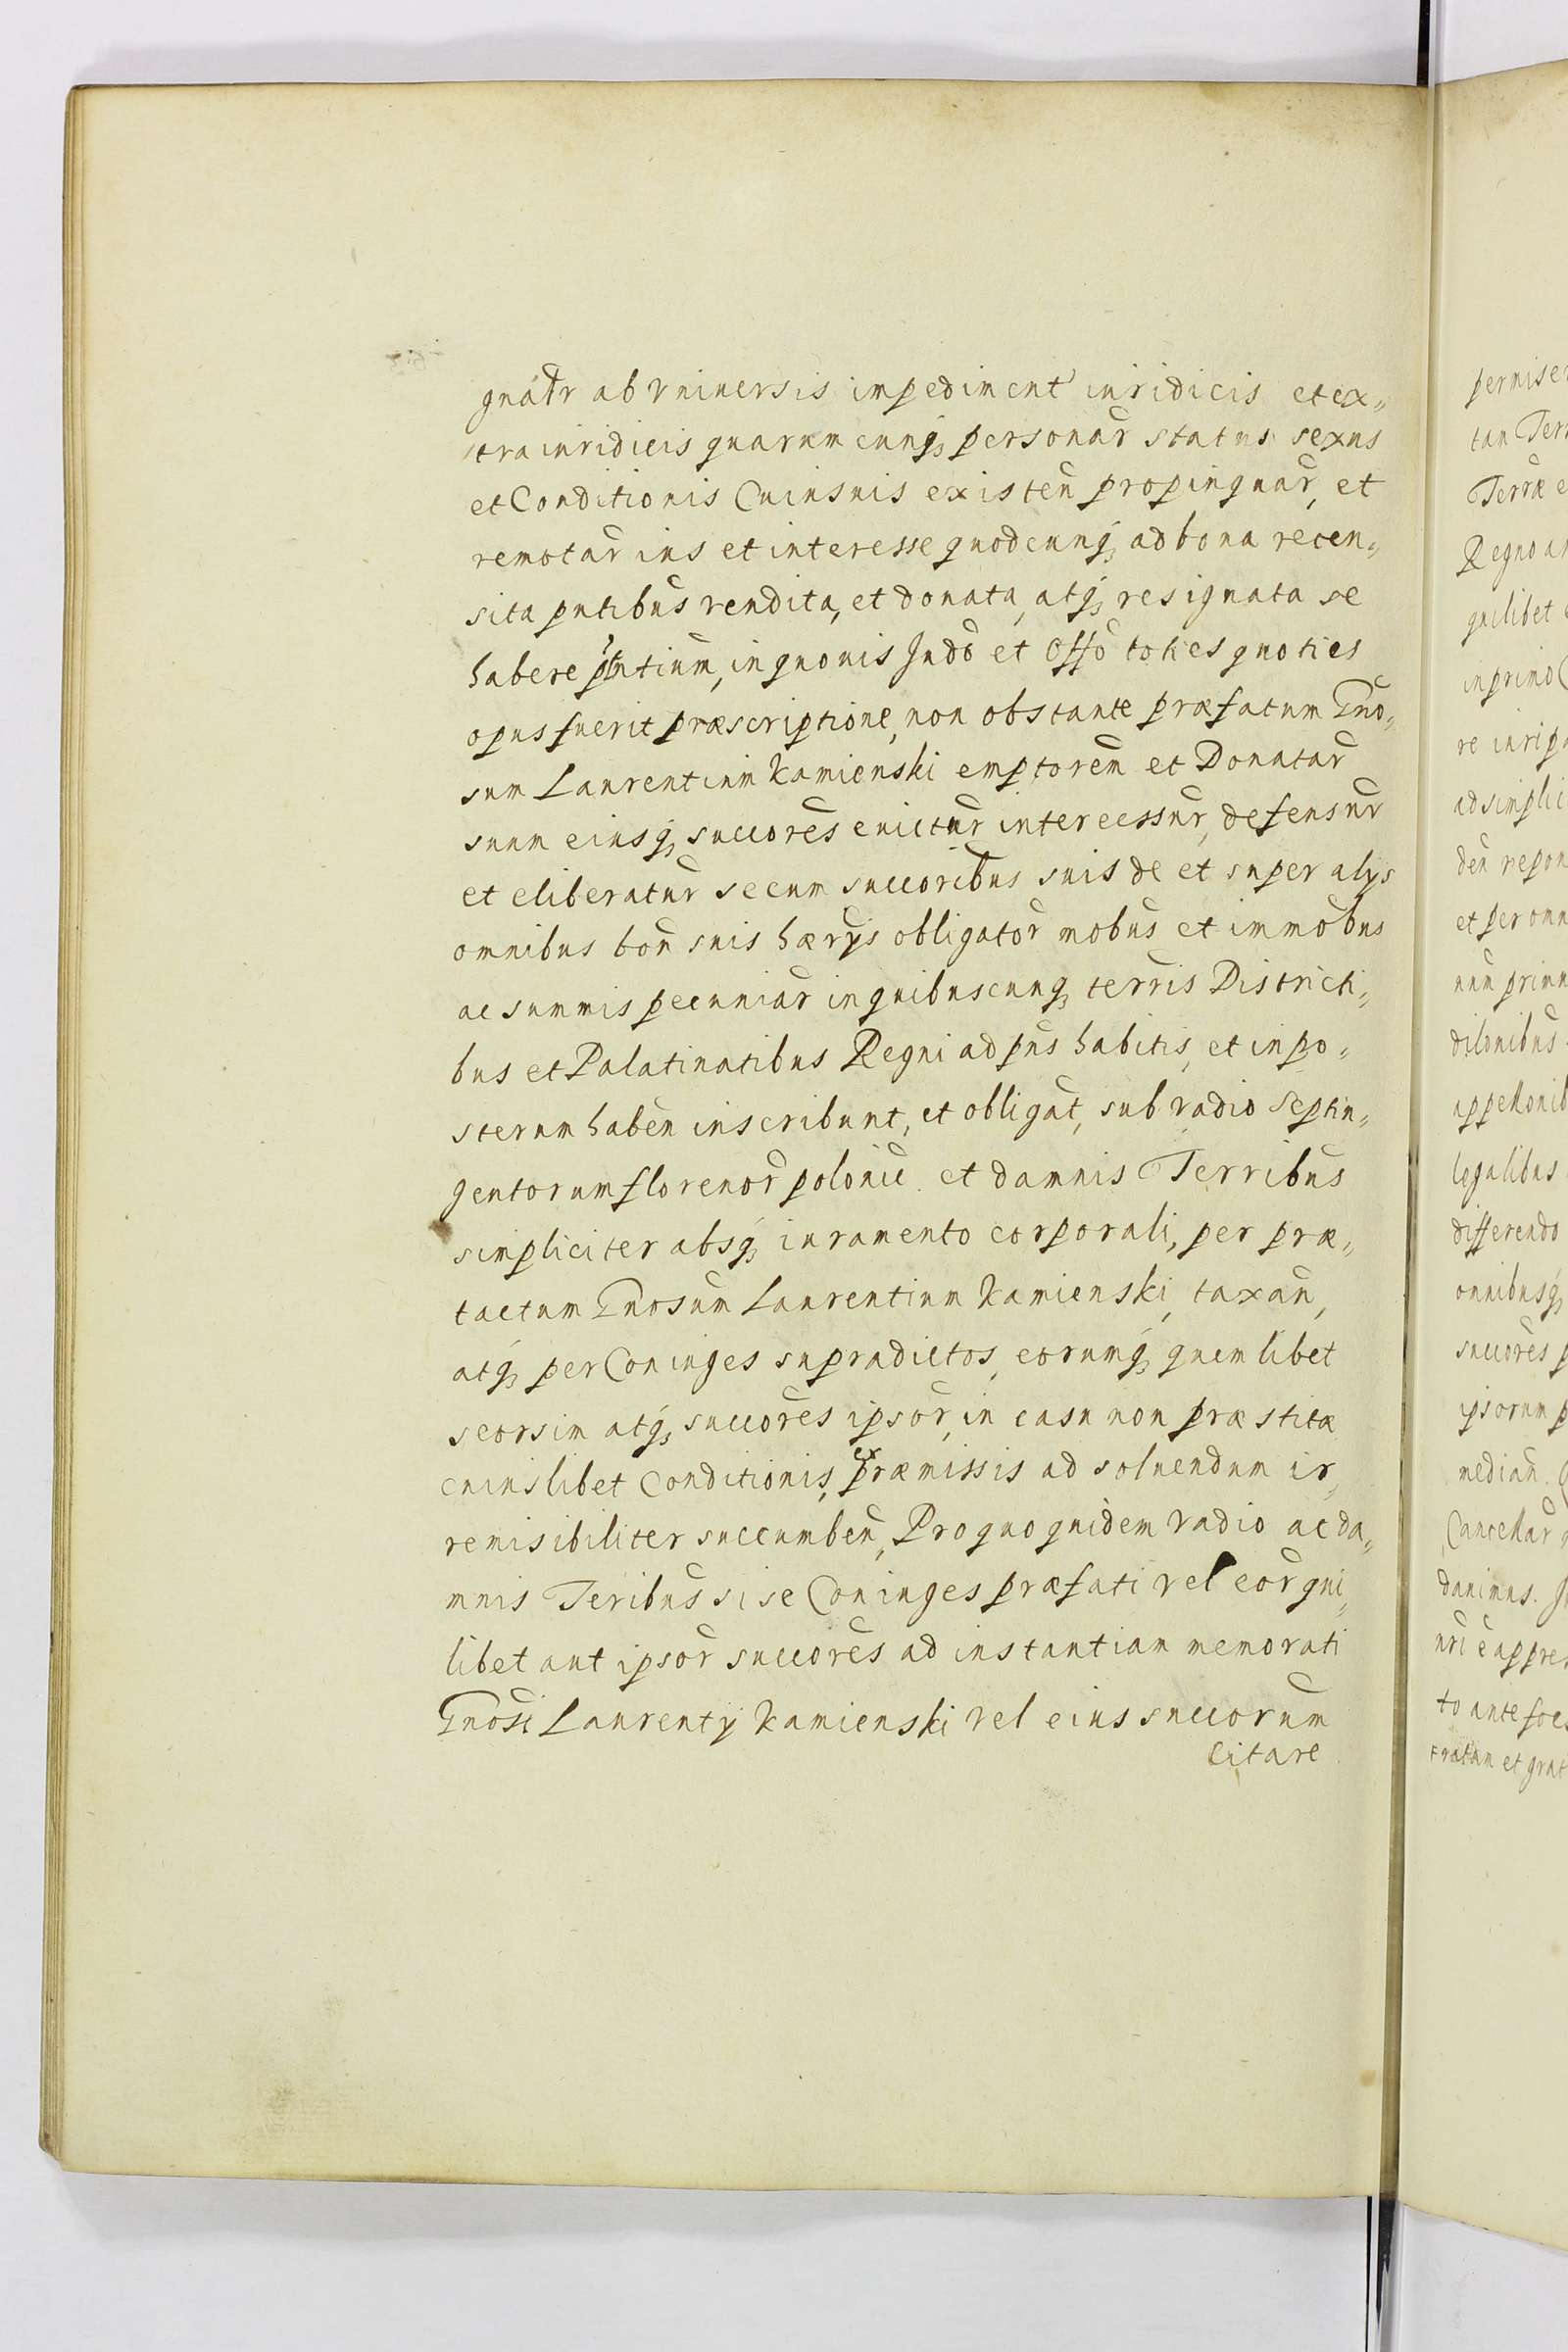 gnatr ab vniuersis impediment iuridicis et ex„
tra iuridicis quarumcunq, personar̃ status sexus
et Conditionis Cuiusuis existeñ propinquar̃, et
remotar̃ ius et interesse quodcunq, ad bona recen„
sita pntibus̃ vendita, et donata, atq, resignata se
habere pntium, in quouis Judõ et Offõ toties quoties
opus fuerit præscriptione, non obstante præfatum Gno„
sum Laurentium Kamienski emptorem̃ et Donatar̃
suum eiusq, succorẽs euictur̃ intercessur̃, defensur̃
et eliberatur̃ secum succoribus̃ suis de et super alys
omnibus boñ suis hærys̃ obligator̃ mobus̃ et immobus̃
ac summis pecuniar̃ in quibuscunq, terris̃ Districti„
bus et Palatinatibus Regni ad pñs habitis, et in po„
sterum habeñ inscribunt, et obligat̃, sub vadio septin„
gentorum florenor̃ polonic̃. et damnis Terribus̃
simpliciter absq, iuramento corporali, per præ„
tactum Gnosum̃ Laurentium Kamienski, taxañ,
atq, per Coniuges supradictos, eorumq, quemlibet
seorsim atq, succorẽs ipsor̃, in casu non præstitæ
cuiuslibet Conditionis, ex præmissis ad soluendum ir„
remisibiliter succumbeñ, Pro quo quidem vadio ac da„
mnis Teribus̃ si se Coniuges præfati vel eor̃ qui„
libet aut ipsor̃ succorẽs ad instantiam memorati
Gnosĩ Laurenty Kamienski vel eius succorum̃
citare
permiser
tan
Terræ e
Regno
quilibet
in primo
re in ripa
ad simplic
deñ repon
et per omn
num prim
dilonibus̃
appellonib
legalibus
differendo
omnibusq,
succorẽs p
ipsorum p
mediañ.
Cancellar̃
danimus.
nri e appre
to ante
tratam et grat